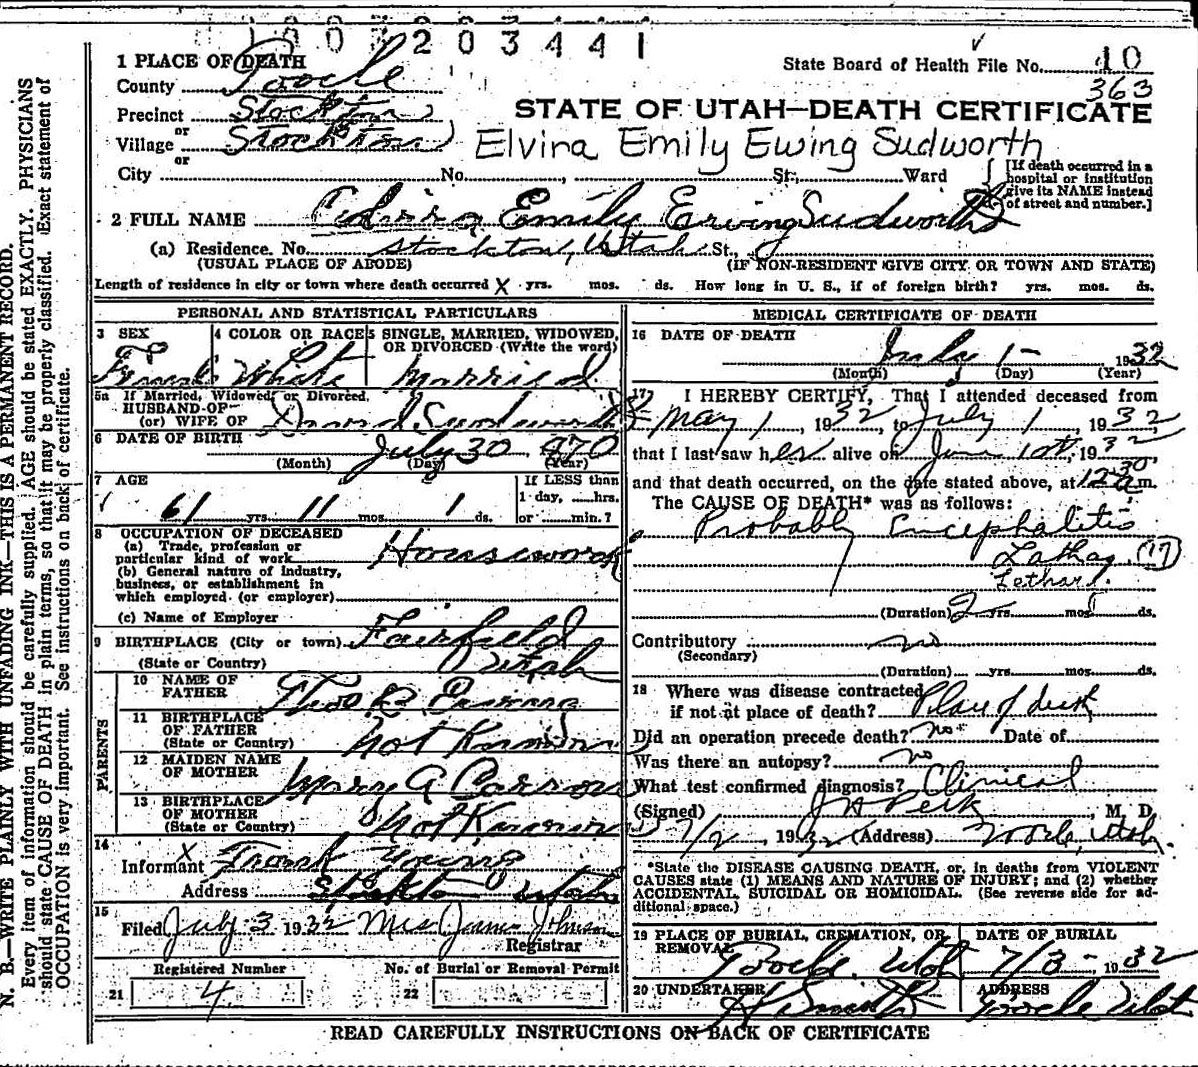 1007203441
1 PLACE OF DEATH
State Board of Health File No. 10
County Tooele
363
Precinct Stockton
STATE OF UTAH—DEATH CERTIFICATE
or
Village Stockton
Elvira Emily Ewing Sudworth
or
City No. , St., Ward
[If death occurred in a hospital or institution give its NAME instead of street and number.]
2 FULL NAME Elvira Emily Ewing Sudworth
(a) Residence. No. Stockton, Utah St.,
(USUAL PLACE OF ABODE) (IF NON-RESIDENT GIVE CITY OR TOWN AND STATE)
Length of residence in city or town where death occurred X yrs. mos. ds. How long in U. S., if of foreign birth? yrs. mos. ds.
PERSONAL AND STATISTICAL PARTICULARS
3 SEX 4 COLOR OR RACE 5 SINGLE, MARRIED, WIDOWED,
OR DIVORCED (Write the word)
Female White Married
5a If Married, Widowed, or Divorced,
HUSBAND OF
(or) WIFE OF David Sudworth
6 DATE OF BIRTH July 30 1870
(Month) (Day) (Year)
7 AGE If LESS than
1 day, hrs.
61 yrs. 11 mos. 1 ds. or min.?
8 OCCUPATION OF DECEASED
(a) Trade, profession or
particular kind of work Housework
(b) General nature of industry,
business, or establishment in
which employed (or employer)
(c) Name of Employer
9 BIRTHPLACE (City or town) Fairfield
(State or Country) Utah
PARENTS
10 NAME OF
FATHER
11 BIRTHPLACE
OF FATHER
(State or Country) Not Known
12 MAIDEN NAME
OF MOTHER Mary A Carson
13 BIRTHPLACE
OF MOTHER
(State or Country) Not Known
14
Informant Frank Young
Address Stockton Utah
15
Filed July 3 1932 Mrs James Johnson
Registrar
Registered Number No. of Burial or Removal Permit
21 4 22
MEDICAL CERTIFICATE OF DEATH
16 DATE OF DEATH
July 1- 1932
(Month) (Day) (Year)
17 I HEREBY CERTIFY, That I attended deceased from
May 1, 1932, to July 1, 1932
that I last saw her alive on June 10th, 1932
and that death occurred, on the date stated above, at 12 30 a m.
The CAUSE OF DEATH* was as follows:
Probably Encephalitis
Lethag. (17)
Lethar.
(Duration) 2 yrs. mos. ds.
Contributory no
(Secondary)
(Duration) yrs. mos. ds.
18 Where was disease contracted
if not at place of death? Place of death
Did an operation precede death? no Date of
Was there an autopsy? no
What test confirmed diagnosis? Clinical
(Signed) J H Peck, M. D.
7/2 1932 (Address) Tooele, Utah.
*State the DISEASE CAUSING DEATH, or, in deaths from VIOLENT
CAUSES state (1) MEANS AND NATURE OF INJURY; and (2) whether
ACCIDENTAL, SUICIDAL OR HOMICIDAL. (See reverse side for ad-
ditional space.)
19 PLACE OF BURIAL, CREMATION, OR DATE OF BURIAL
REMOVAL
Tooele Utah 7/3- 1932
20 UNDERTAKER ADDRESS
Tooele Utah
READ CAREFULLY INSTRUCTIONS ON BACK OF CERTIFICATE
N. B.—WRITE PLAINLY WITH UNFADING INK—THIS IS A PERMANENT RECORD.
Every item of information should be carefully supplied. AGE should be stated EXACTLY. PHYSICIANS
should state CAUSE OF DEATH in plain terms, so that it may be properly classified. Exact statement of
OCCUPATION is very important. See instructions on back of certificate.